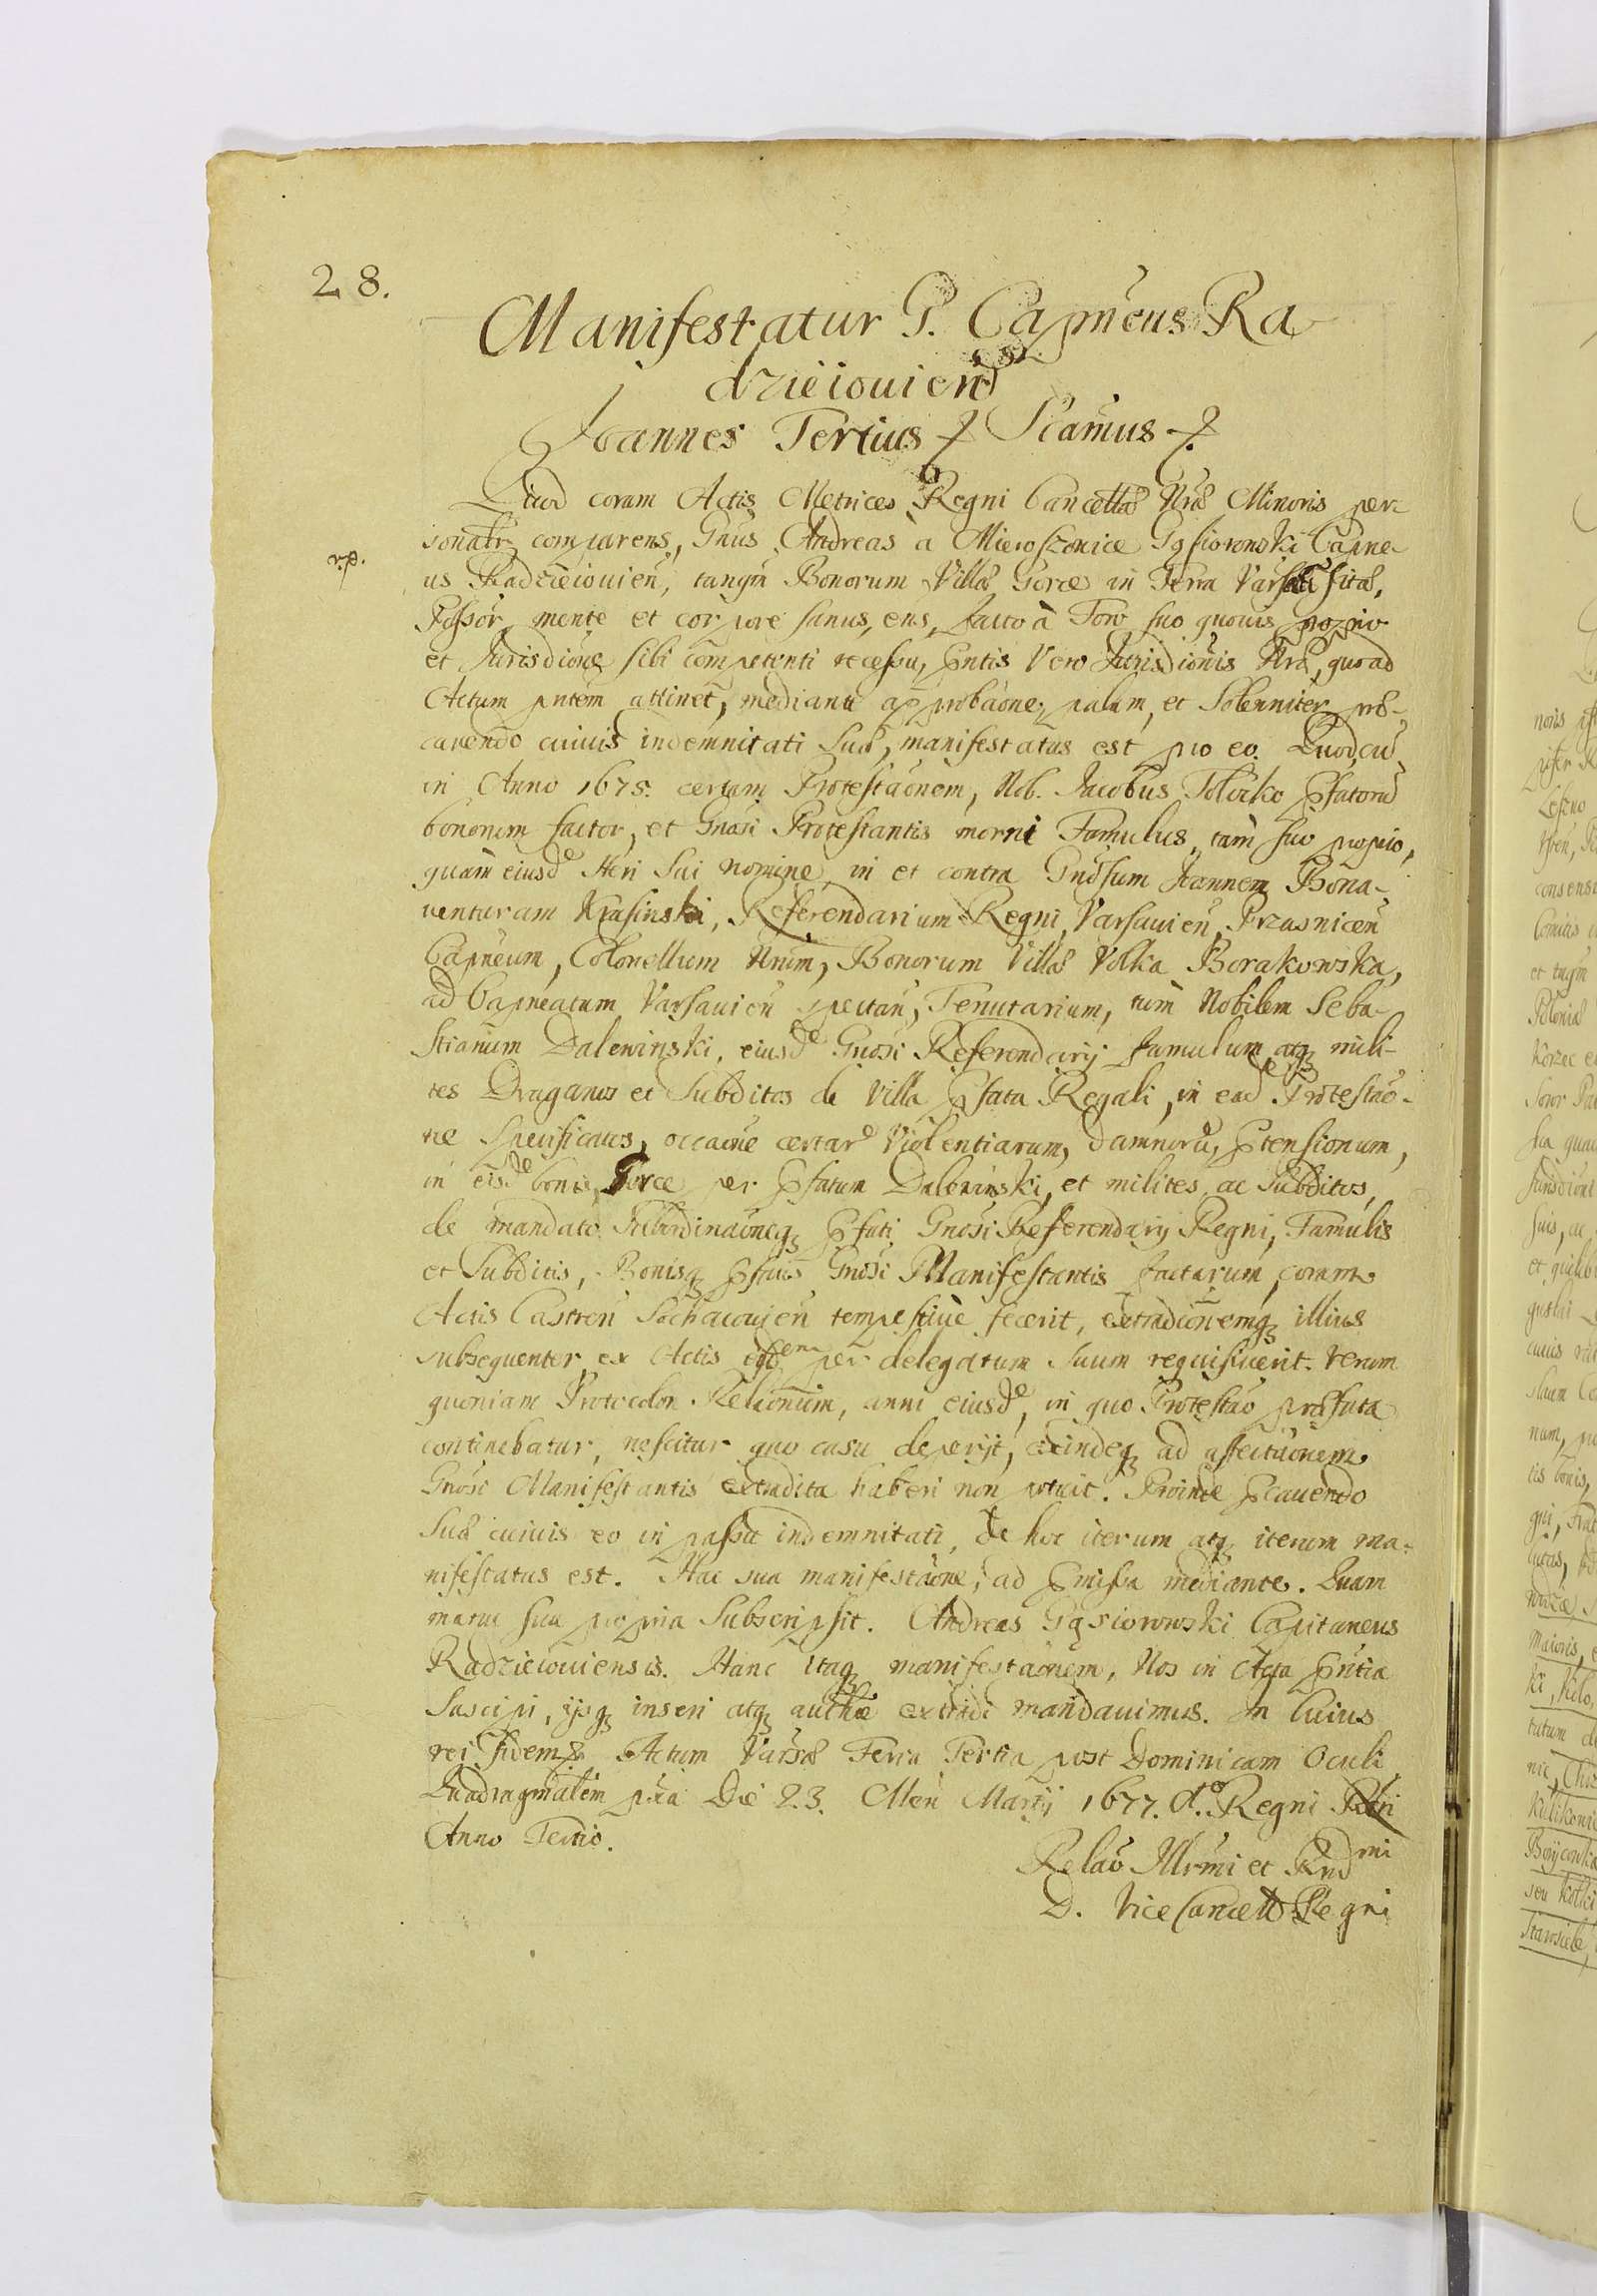 28.
Manifestatur G. Capneus Ra
dzieiouien
Joannes Tertius & Scamus &.
Quod coram Actis Metrices Regni Cancellæ Nræ Minoris per-
sonalr comparens, Gnus Andreas à Mieroszonice Gąsiorowski Capne-
r.p.
us Radzieiouien, tanqm Bonorum Villæ Gorce in Terra Varsa sitæ,
Possor, mente et corpore sanus, ens, facto à Foro suo quouis proprio
et Jurisdione sibi competenti recessu, Pntis Vero Jurisdionis Nræ, quoad
Actum pntem attinet, mediante approbaone, palam, et Solenniter præ-
cauendo cuiuis indemnitati Suæ, manifestatus est pro eo. Quod, cu
in Anno 1675. certam Protestaonem, Nob. Jacobus Tolocko Pfatoru
bonorum factor, et Gnosi Protestantis morni Famulus, tam suo proprio,
quam eiusde Heri Sui nomine, in et contra Gnosum Joannem Bona-
uenturam Krasinski, Referendarium Regni, Varsauien, Przasnicen
Capneum, Colonellum Nrum, Bonorum Villæ Volka Borakowska,
ad Capneatum Varsauien spectan, Tenutarium, tum Nobilem Seba-
stianum Dalewinski, eiusde Gnosi Referendarij famulum, atq mili-
tes Draganos et Subditos de Villa Pfata Regali, in eade Protestao-
ne Specificatos, occaone certare Violentiarum, damnoru, Ptensionum,
in eisde bonis, Gorce per Pfatum Dalewinski, et milites, ac Subditos,
de mandato Subordinaoneq Pfati Gnosi Referendarij Regni, Famulis
et Subditis, Bonisq Pfatis Gnosi Manifestantis factarum, coram
Actis Castren Sochacouien tempestiue fecerit, extradionemq illius
subsequenter ex Actis eisdem per delegatum Suum requisiuerit. Verum
quoniam Protocolon Relaonum, anni eiusde, in quo Protestao præfata
continebatur, nescitur quo casu deperijt, exindeq ad affectaonem
Gnosi Manifestantis extradita haberi non potuit. Proinde Pcauendo
Suæ cuiuis eo in passu indemnitati, de hoc iterum atq iterum ma-
nifestatus est. Hac sua manifestaone, ad Pmissa mediante. Quam
manu sua propria Subscripsit. Andreas Gąsiorowski Capitaneus
Radzieiouiensis. Hanc itaq manifestaonem, Nos in Acta Pntia
Suscipi, ijsq inseri atq authæ extradi mandauimus. In Cuius
rei fidem &. Actum Varsæ Feria Tertia post Dominicam Oculi
Quadragmalem pxia Die 23. Men Martij 1677. Ao. Regni Nri
Anno Tertio.
Relao Illrmi et Rndmi
D. Vice Cancell Regni